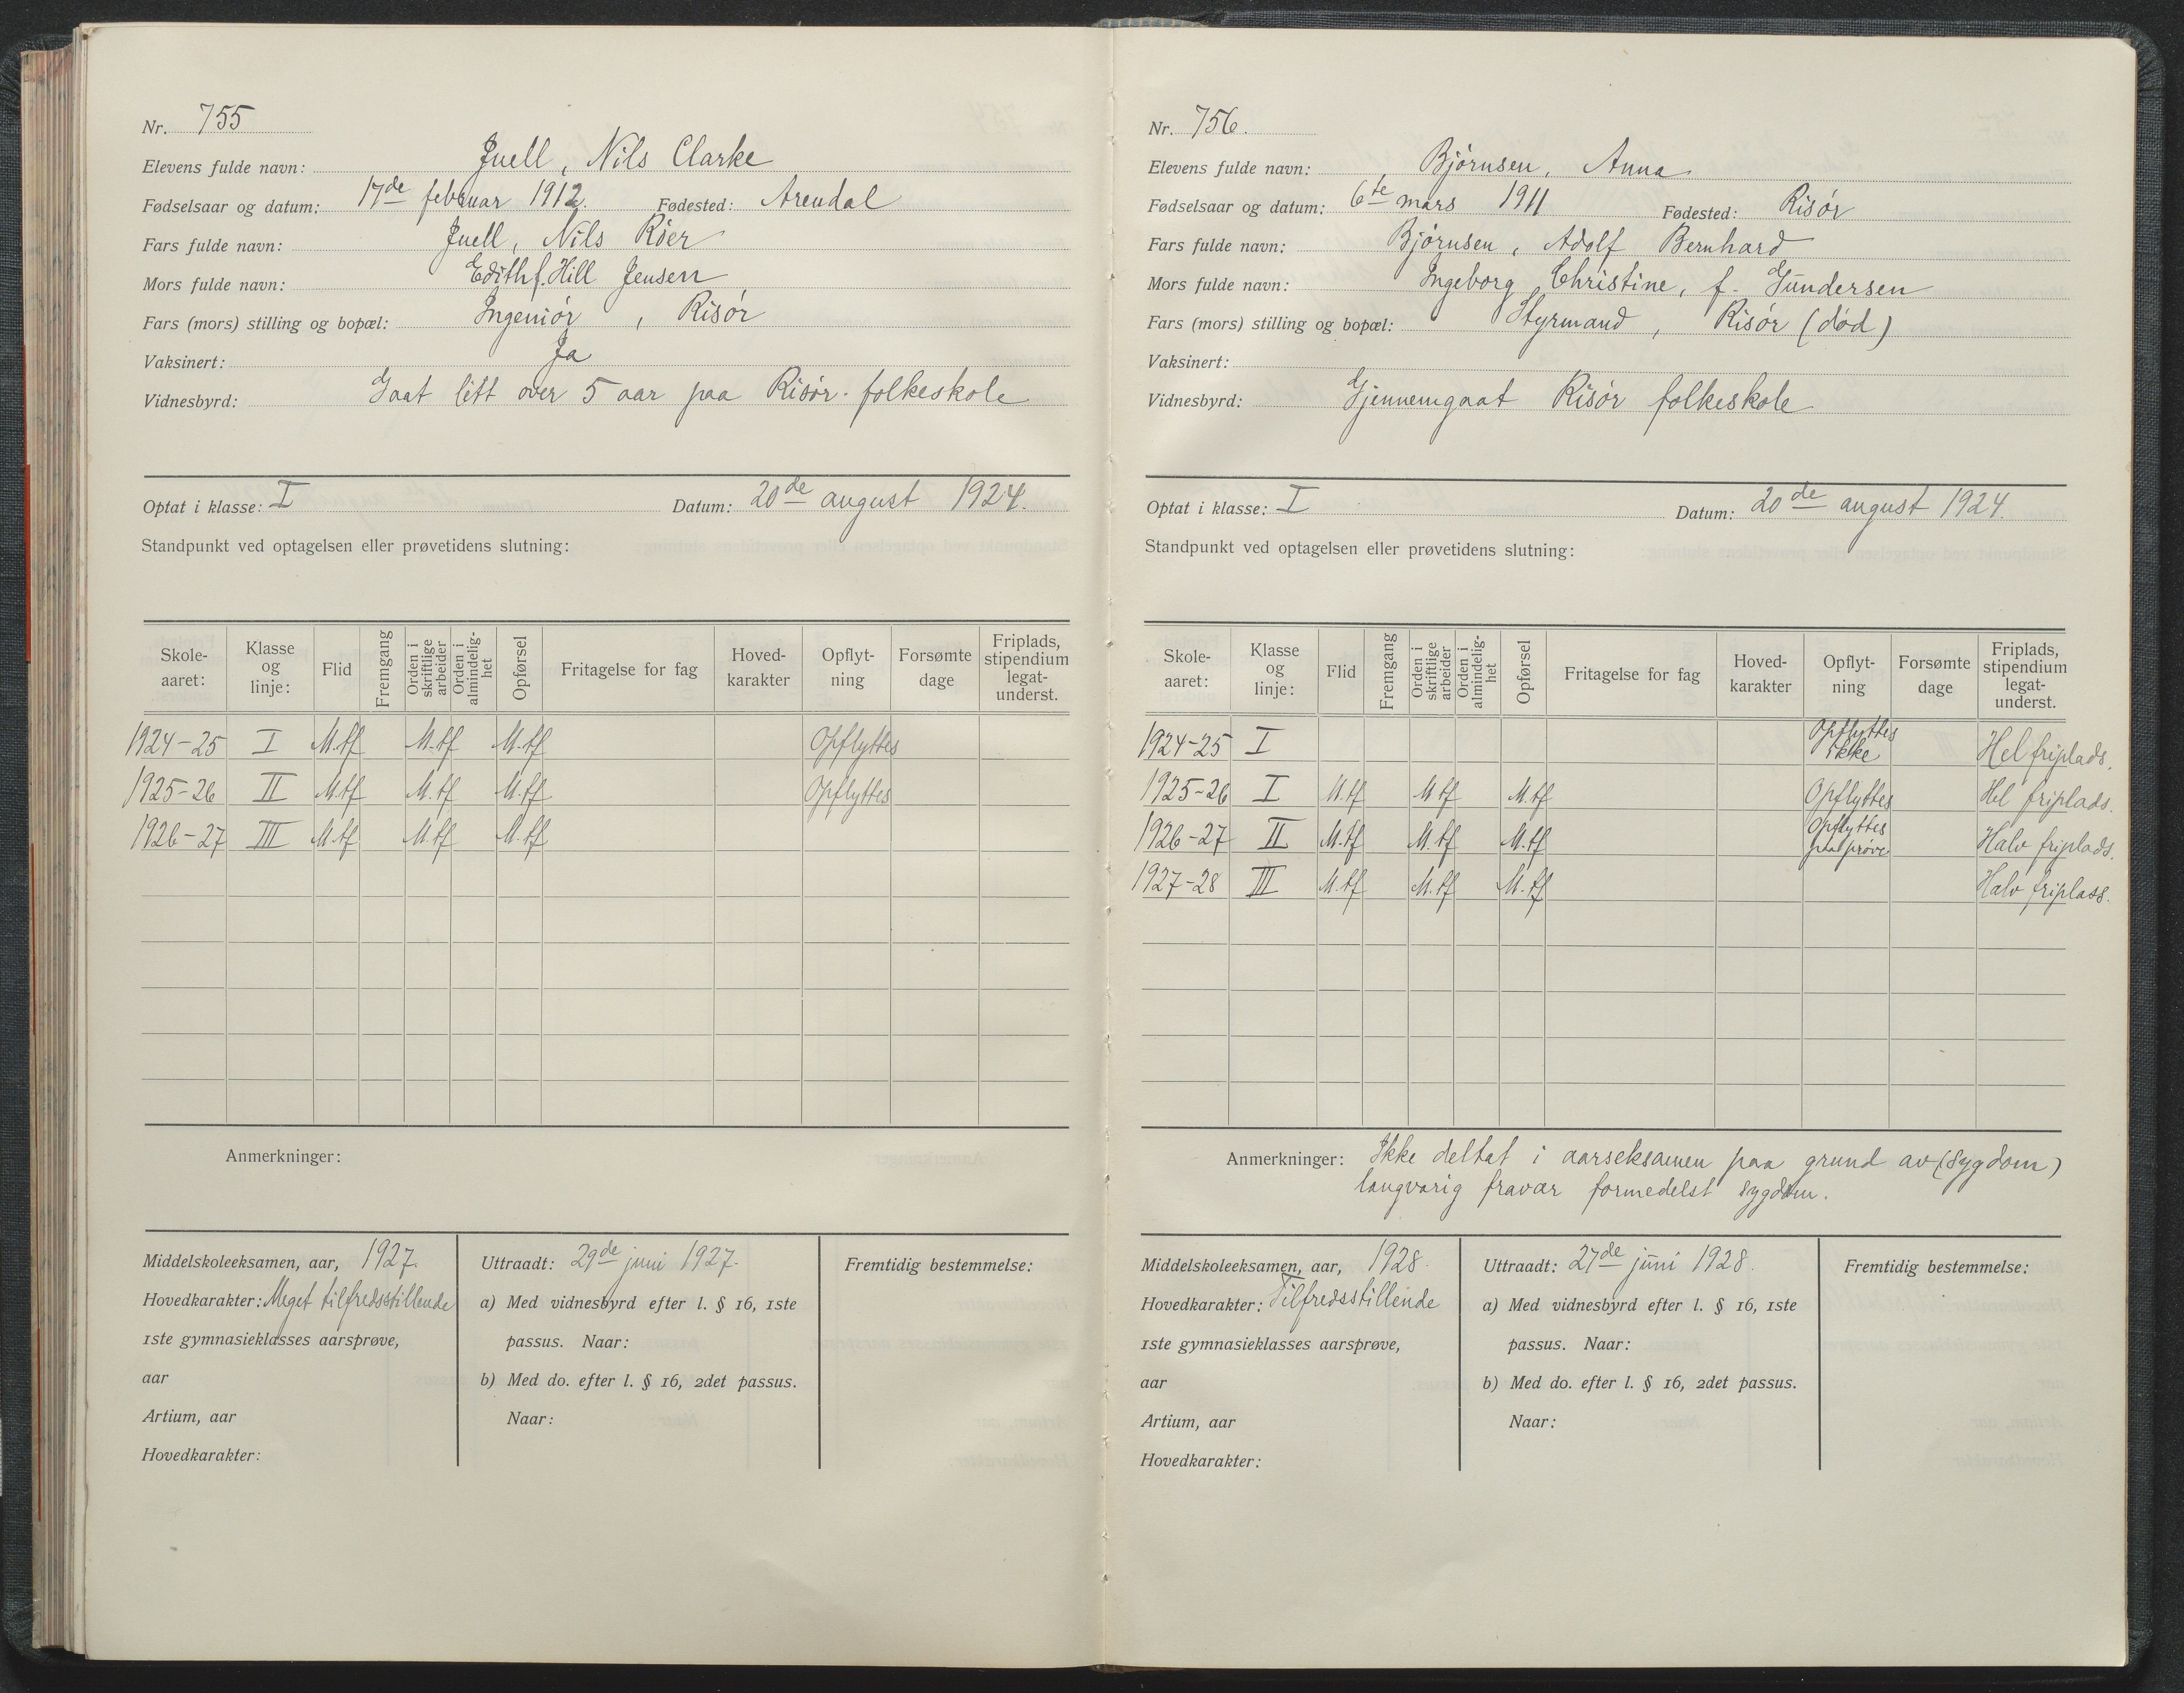 Nr. 755
Elevens fulde navn: Juell, Nils Clarke
Fødselsaar og datum: 17de februar 1912. Fødested: Arendal
Fars fulde navn: Juell, Nils Röer
Mors fulde navn: Edith f. Hill Jensen
Fars (mors) stilling og bopæl: Ingeniör, Risör
Vaksinert: Ja
Vidnesbyrd: Gaat litt over 5 aar paa Risör folkeskole
Optat i klasse: I Datum: 20de august 1924.
Standpunkt ved optagelsen eller prøvetidens slutning:
Skole-aaret: Klasse og linje: Flid Fremgang Orden i skriftlige arbeider Orden i almindelig-het Opførsel Fritagelse for fag Hoved-karakter Opflyt-ning Forsømte dage Friplads, stipendium legat-underst.
1924-25 I M.tf M.tf M.tf Opflyttes
1925-26 II M.tf M.tf M.tf Opflyttes
1926-27 III M.tf M.tf M.tf
Anmerkninger:
Middelskoleeksamen, aar, 1927.
Hovedkarakter: Meget tilfredsstillende
1ste gymnasieklasses aarsprøve,
aar
Artium, aar
Hovedkarakter:
Uttraadt: 29de juni 1927.
a) Med vidnesbyrd efter l. § 16, 1ste
passus. Naar:
b) Med do. efter l. § 16, 2det passus.
Naar:
Fremtidig bestemmelse:
Nr. 756.
Elevens fulde navn: Björnsen, Anna
Fødselsaar og datum: 6te mars 1911 Fødested: Risör
Fars fulde navn: Björnsen, Adolf Bernhard
Mors fulde navn: Ingeborg Christine, f. Gundersen
Fars (mors) stilling og bopæl: Styrmand, Risör (död)
Vaksinert:
Vidnesbyrd: Gjennemgaat Risör folkeskole
Optat i klasse: I Datum: 20de august 1924.
Standpunkt ved optagelsen eller prøvetidens slutning:
Skole-aaret: Klasse og linje: Flid Fremgang Orden i skriftlige arbeider Orden i almindelig-het Opførsel Fritagelse for fag Hoved-karakter Opflyt-ning Forsømte dage Friplads, stipendium legat-underst.
1924-25 I Opflyttes ikke Hel friplads.
1925-26 I M.tf M.tf M.tf Opflyttes Hel friplads.
1926-27 II M.tf M.tf M.tf Opflyttes paa pröve Halv friplads.
1927-28 III M.tf M.tf M.tf Halv friplass.
Anmerkninger: Ikke deltat i aarseksamen paa grund av (sygdom)
langvarig fravær formedelst sygdom.
Middelskoleeksamen, aar, 1928.
Hovedkarakter: Tilfredsstillende
1ste gymnasieklasses aarsprøve,
aar
Artium, aar
Hovedkarakter:
Uttraadt: 27de juni 1928.
a) Med vidnesbyrd efter l. § 16, 1ste
passus. Naar:
b) Med do. efter l. § 16, 2det passus.
Naar:
Fremtidig bestemmelse: